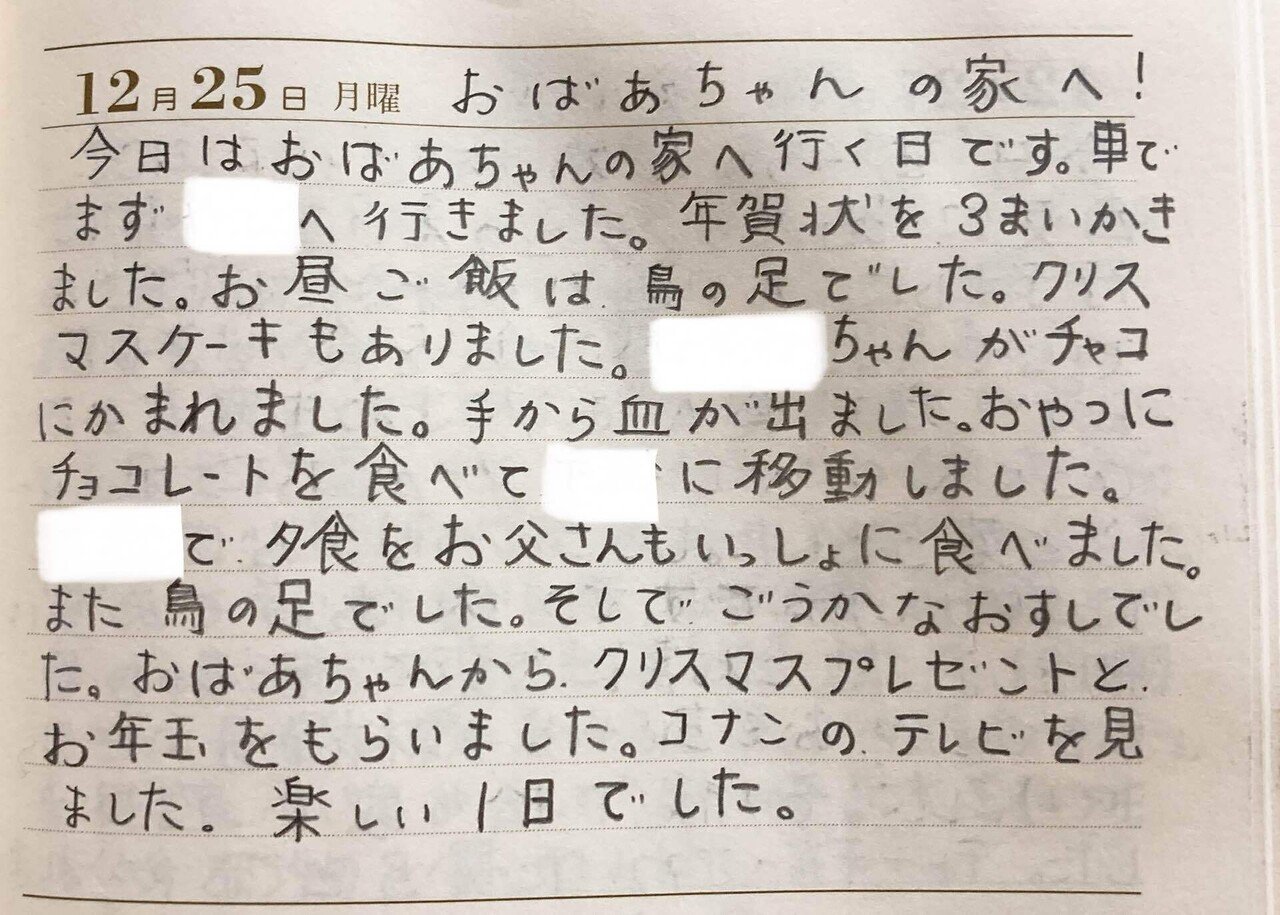 12月25日 月曜 おばあちゃんの家へ!
今日はおばあちゃんの家へ行く日です。車で
まず へ行きました。年賀状を3まいかき
ました。お昼ご飯は鳥の足でした。クリス
マスケーキもありました。 ちゃんがチャコ
にかまれました。手から血が出ました。おやつに
チョコレートを食べて に移動しました。
で夕食をお父さんもいっしょに食べました。
また鳥の足でした。そしてごうかなおすしでし
た。おばあちゃんからクリスマスプレゼントと
お年玉をもらいました。コナンのテレビを見
ました。楽しい1日でした。